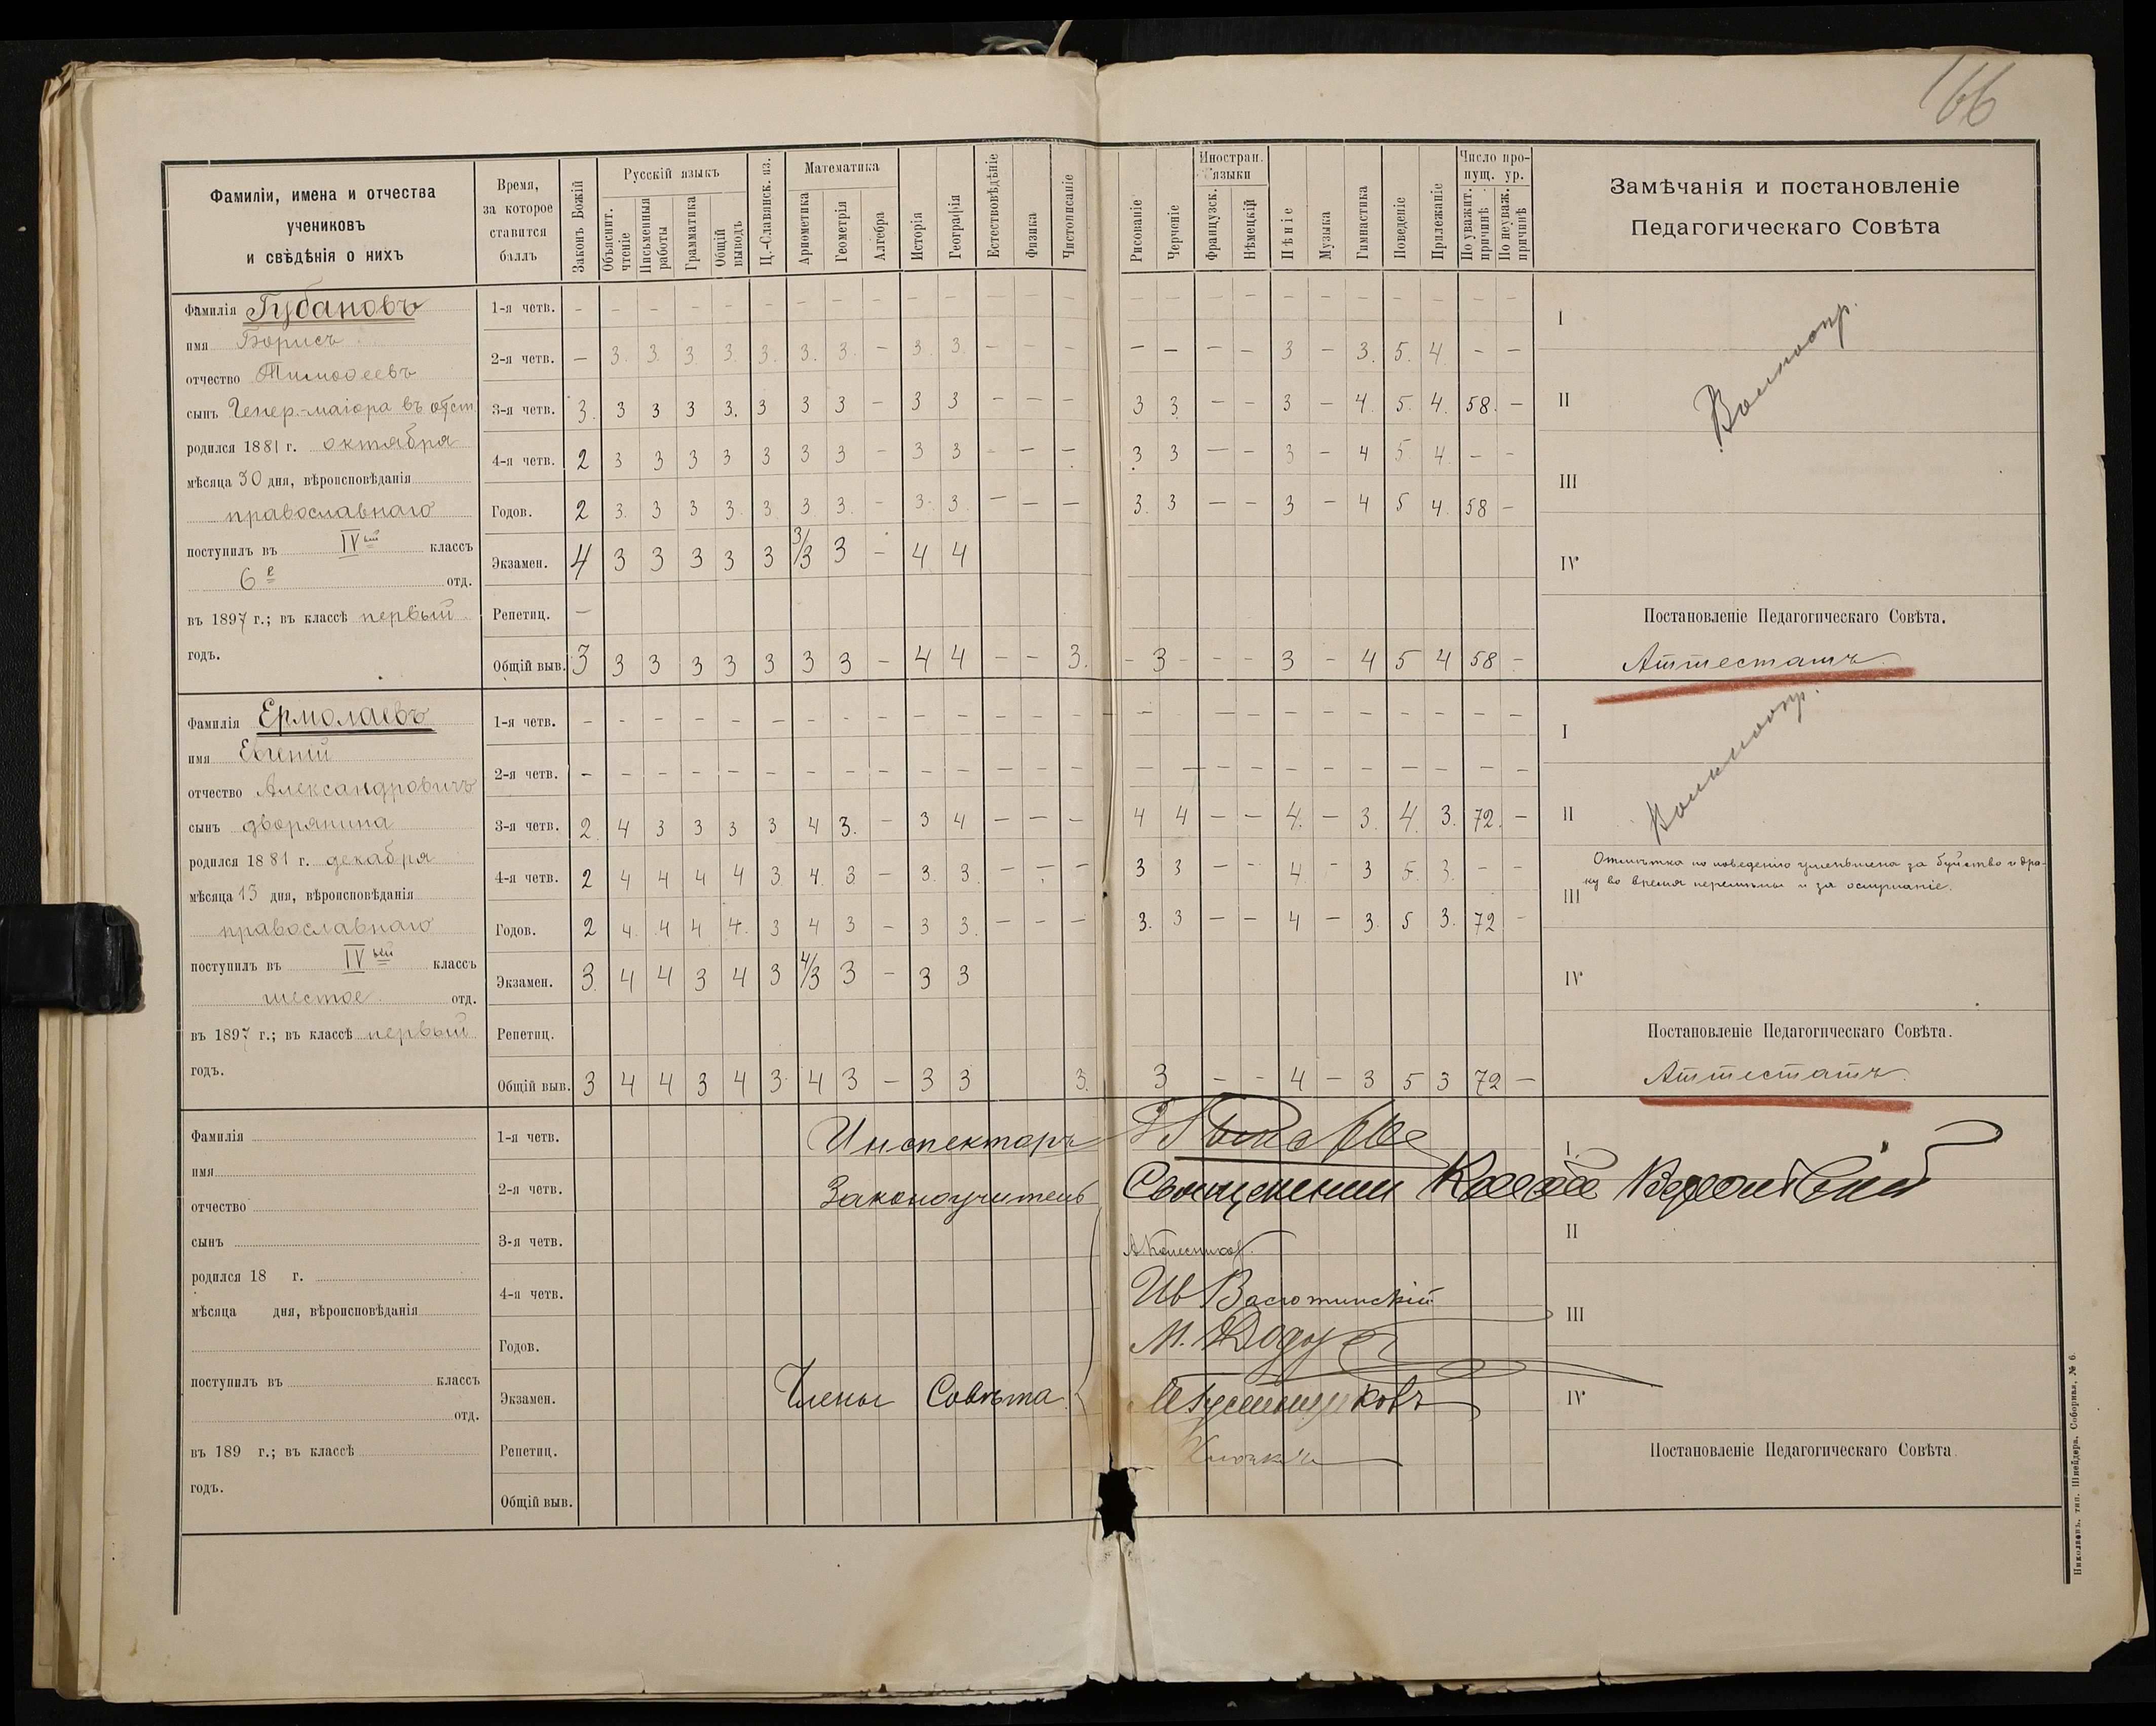 166
Фамиліи, имена и отчества
учениковъ
и свѣдѣнія о нихъ
Время,
за которое
ставится
баллъ
Законъ Божій
Русскій языкъ
Объяснит. чтеніе
Письменныя работы
Грамматика
Общій выводъ
Ц.-Славянск. яз.
Математика
Ариѳметика
Геометрія
Алгебра
Исторія
Географія
Естествовѣдѣніе
Физика
Чистописаніе
Рисованіе
Черченіе
Иностран. языки
Французск.
Нѣмецкій
Пѣніе
Музыка
Гимнастика
Поведеніе
Прилежаніе
Число пропущ. ур.
По уважит. причинѣ
По неуваж. причинѣ
Замѣчанія и постановленіе
Педагогическаго Совѣта
Фамилія Губановъ
имя Борисъ
отчество Тимоѳеевъ
сынъ Генер.-маіора въ отст.
родился 1881 г. октября
мѣсяца 30 дня, вѣроисповѣданія
православнаго
поступилъ въ IVый классъ
6е отд.
въ 1897 г.; въ классѣ первый
годъ.
1-я четв. – – – – – – – – – – – – – – – – – – – – – – – – –
2-я четв. – 3. 3. 3 3. 3. 3. 3. – 3 3. – – – – – – – 3 – 3. 5. 4 – –
3-я четв. 3. 3 3 3 3. 3 3 3 – 3 3 – – – 3 3 – – 3 – 4. 5. 4. 58. –
4-я четв. 2 3 3 3 3 3 3 3 – 3 3 – – – 3 3 – – 3 – 4 5. 4. – –
Годов. 2 3. 3 3 3. 3. 3. 3. – 3. 3. – – – 3. 3 – – 3 – 4 5 4. 58 –
Экзамен. 4 3 3 3 3 3 3/3 3 – 4 4
Репетиц. –
Общій выв. 3 3 3 3 3 3 3 3 – 4 4 – – 3. – 3 – – – 3 – 4 5 4 58 –
I
II
III
IV
Постановленіе Педагогическаго Совѣта.
Аттестатъ.
Фамилія Ермолаевъ
имя Евгеній
отчество Александровичъ
сынъ дворянина
родился 1881 г. декабря
мѣсяца 13 дня, вѣроисповѣданія
православнаго
поступилъ въ IVый классъ
шестое отд.
въ 1897 г.; въ классѣ первый
годъ.
1-я четв. – – – – – – – – – – – – – – – – – – – – – – – –
2-я четв. – – – – – – – – – – – – – – – – – – – – – – – – –
3-я четв. 2. 4 3 3 3 3 4 3. – 3 4 – – – 4 4 – – 4. – 3. 4. 3. 72. –
4-я четв. 2 4 4 4 4 3. 4. 3. – 3. 3. – – – 3 3 – – 4 3 5. 3. – –
Годов. 2 4. 4 4 4. 3 4 3 – 3 3. – – – 3. 3 – – 4 – 3. 5 3. 72 –
Экзамен. 3. 4 4 3 4 3 4/3 3 – 3 3
Репетиц.
Общій выв. 3 4 4 3 4 3. 4 3 – 3 3 3. 3 – – 4 – 3 5 3 72 –
I
II
Отмѣтка по поведенію уменьшена за буйство и дра-
ку во время перемѣны и за ослушаніе.
III
IV
Постановленіе Педагогическаго Совѣта.
Аттестатъ.
Фамилія
имя
отчество
сынъ
родился 18 г.
мѣсяца дня, вѣроисповѣданія
поступилъ въ классъ
отд.
въ 189 г.; въ классѣ
годъ.
1-я четв.
2-я четв.
3-я четв.
4-я четв.
Годов.
Экзамен.
Репетиц.
Общій выв.
Инспекторъ
Законоучитель Священникъ
А. Колесников.
Ив Васютинскій
М.
Члены Совѣта
I
II
III
IV
Постановленіе Педагогическаго Совѣта.
Николаевъ, тип. Шнейдера, Соборная, № 6.